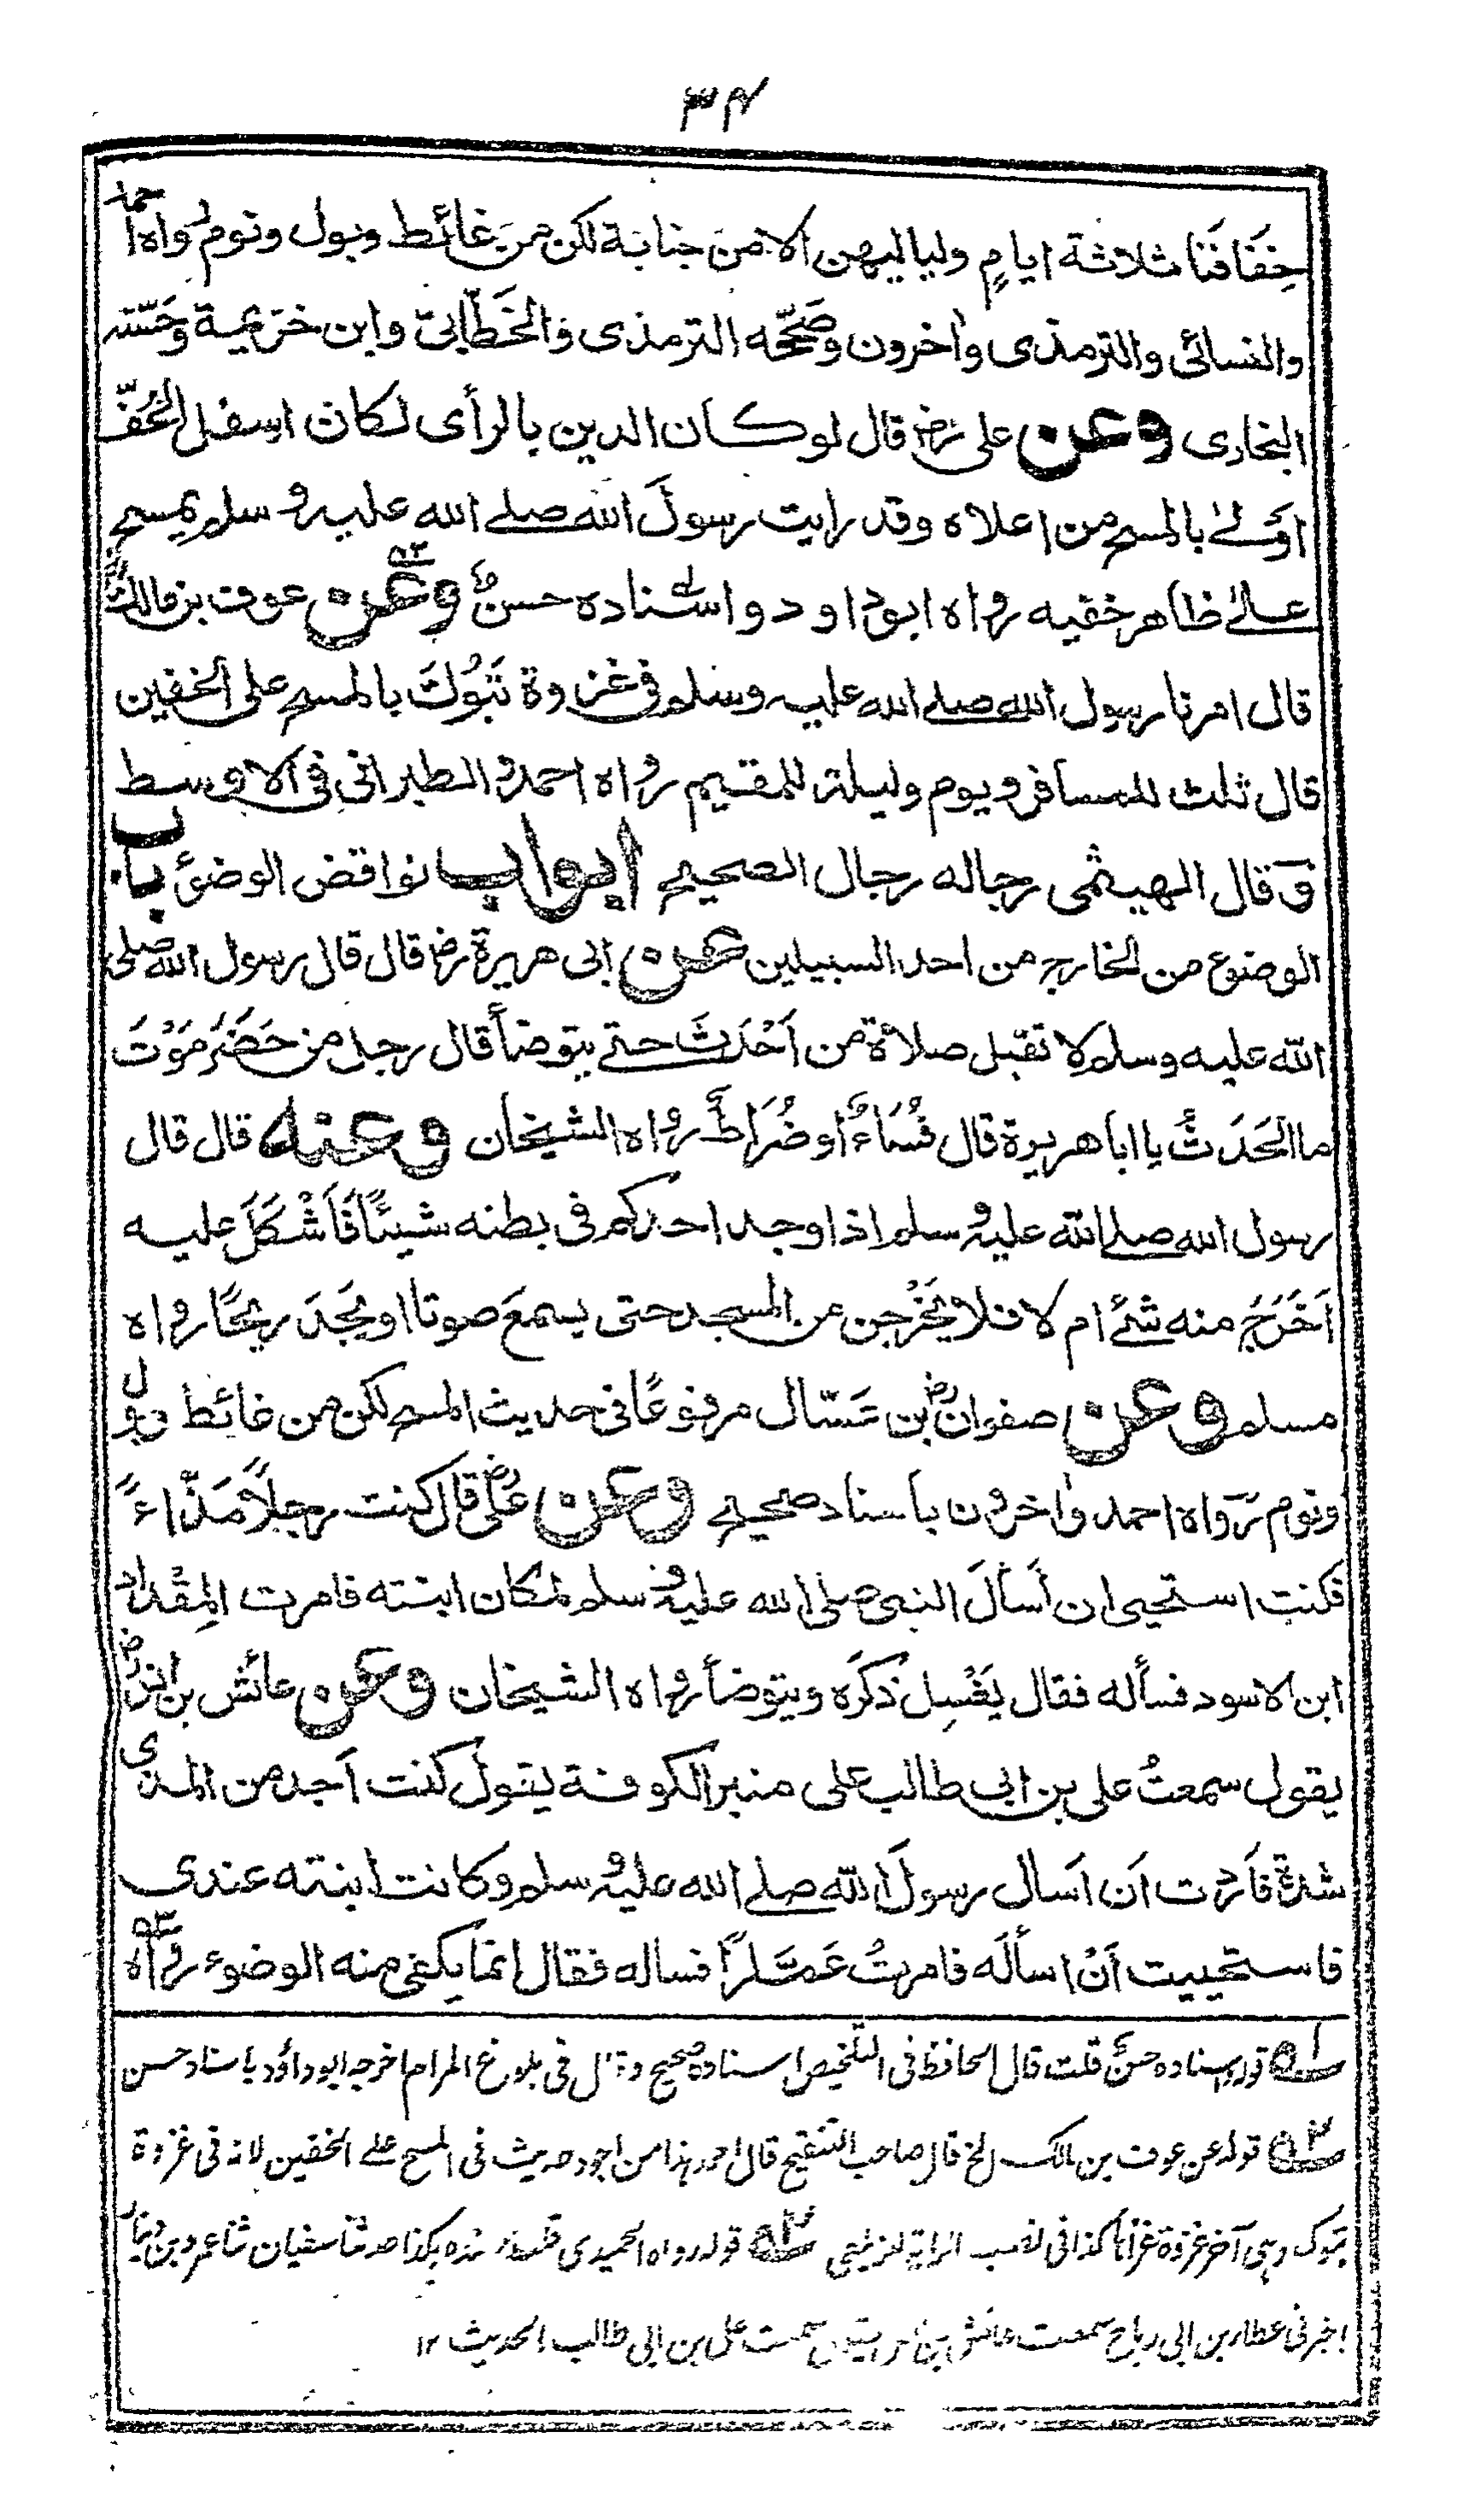 ٣٤
خِفَافَنَا ثلاثة ايامٍ ولياليهن الا من جنابة لكن من غائط وبول ونوم رواه احمد
والنسائى والترمذى واٰخرون وصَحَّحه الترمذى والخَطَّابىّ وابن خزيمة وحَسَّنه
البخارى وعن على رض قال لو كان الدين بالرأى لكان اسفل الخُفّ
اَولٰى بالمسح من اعلاه وقد رايت رسولَ الله صلے الله عليه وسلم يمسح
علٰى ظاهر خفيه رواه ابو داود واسناده حسن وعن عوف بن مالك رض
قال امرنا رسول الله صلے الله عليه وسلم فى غزوة تَبُوْكَ بالمسح على الخفين
قال ثلث للمسافر ويوم وليلة للمقيم رواه احمد والطبرانى فى الاوسط
وقال الهيثمى رجاله رجال الصحيح ابواب نواقض الوضوء باب
الوضوء من الخارج من احد السبيلين عن ابى هريرة رض قال قال رسول الله صلى
الله عليه وسلم لا تقبل صلاة من اَحْدَثَ حتے يتوضأ قال رجل من حَضْرَمَوْتَ
ما الحَدَثُ يا ابا هريرة قال فُسَاءٌ او ضُرَاطٌ رواه الشيخان وعنه قال قال
رسول الله صلے الله عليه وسلم اذا وجد احدكم فى بطنه شيئًا فَاَشْكَلَ عليه
اَخَرَجَ منه شئ ام لا فلا يَخْرُجن من المسجد حتى يسمعَ صوتا او يَجِدَ ريحًا رواه
مسلم وعن صفوان رض بن عَسّال مرفوعًا فى حديث المسح لكن من غائط وبول
ونوم رَواه احمد واٰخرون باسناد صحيح وعن على رض قال كنت رجلًا مَذّاءً
فكنت استحيى ان اَسألَ النبى صلى الله عليه وسلم لمكان ابنته فامرت المِقْداد
ابن الاسود فسأله فقال يَغْسِل ذكرَه ويتوضأ رواه الشيخان وعن عائش بن انس رض
يقول سمعتُ على بن ابى طالب على منبر الكوفة يقول كنت اَجد من المذى
شدة فاَردت اَن اَسأل رسولَ الله صلے الله عليه وسلم وكانت ابنته عندى
فاستحييت اَنْ اسألَه فامرتُ عَمَّارًا فساله فقال انما يكفى منه الوضوء رواه
١ه قوله اسناده حسن قلت قال الحافظ فى التلخيص اسناده صحيح وقال فى بلوغ المرام اخرجه ابو داؤد باسناد حسن
٢ه قوله عن عوف بن مالك الخ قال صاحب التنقيح قال احمد هذا من اجود حديث فى المسح على الخفين لانه فى غزوة
تبوك وهى آخر غزوة غزاها كذا فى نصب الراية للزيلعى ٣ه قوله رواه الحميدى قلت سنده هكذا حدثنا سفيان ثنا عمرو بن دينار
اخبرنى عطاء بن ابى رباح سمعت عائش بن انس يقول سمعت على بن ابى طالب الحديث ١٢